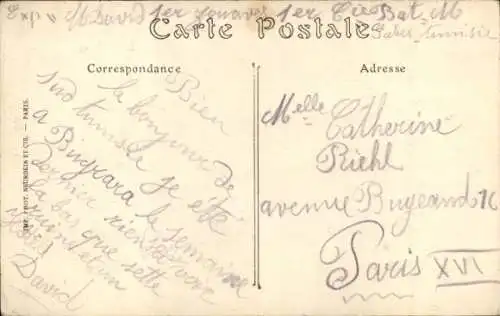 Exp M David 1er zouaves 1er Cie Bat. M
Gabès Tunisie
Carte Postale
Correspondance
Adresse
Bien
le bonjour de
sud tunisie je été
a Bugrara le semaine
dernier rien a voir
la bas que sette
ruine et un
David
Melle Catherine
Riehl
avenue Bugeaud 16
Paris XVI
IMP. PHOT. NEURDEIN ET CIE. — PARIS.